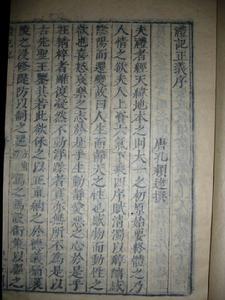 禮記正義序
唐孔穎達撰
夫禮者經天緯地本之則大一之初原始要終體之乃
人情之欲夫人上資六氣下乘四序賦清濁以醇醨感
陰陽而遷變故曰人生而靜天之性也感物而動性之
欲也喜怒哀樂之志於是乎生動靜愛惡之心於是乎
在精粹者雖復凝然不動浮躁者實亦無所不為是以
古先聖王鑒其若此欲保之以正直納之於德義猶襄
陵之浸脩隄防以制之駕之馬設銜策以驅之